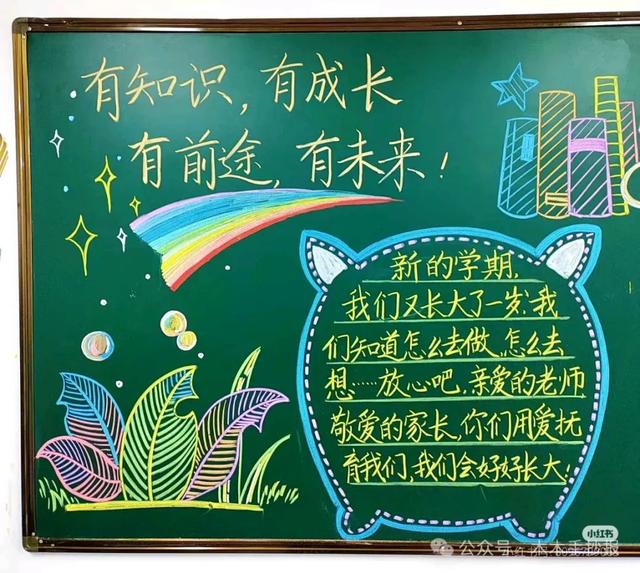 有知识，有成长
有前途，有未来！
新的学期，
我们又长大了一岁！我
们知道怎么去做，怎么去
想……放心吧，亲爱的老师
敬爱的家长，你们用爱抚
育我们，我们会好好长大！
小红书
公众号